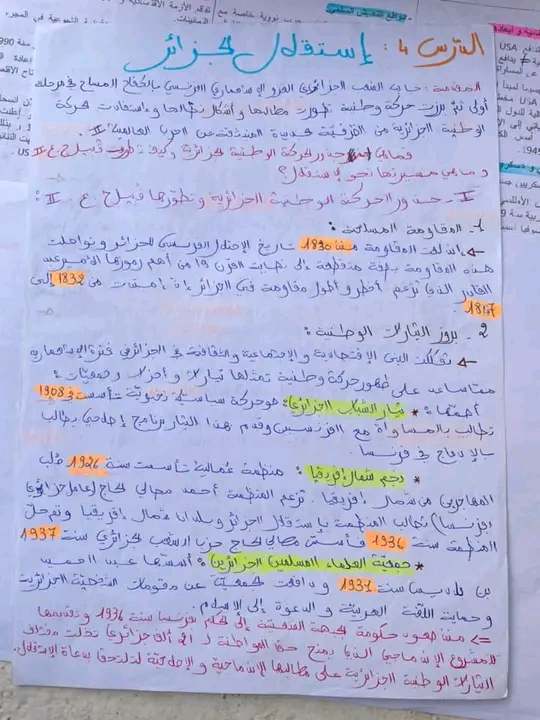 الدرس 4: إستقلال الجزائر
المقدمة: جابه الشعب الجزائري الغزو الإستعماري الفرنسي بالكفاح المسلح في مرحلة
أولى ثم برزت حركة وطنية تطورت مطالبها وأشكال نضالها واستفادت الحركة
الوطنية الجزائرية من الظرفية الجديدة المنبثقة عن الحرب العالمية II.
فماهي جذور الحركة الوطنية الجزائرية وكيف تطورت قبيل ح ع II
و ما هي مسيرتها نحو الإستقلال؟
I - جذور الحركة الوطنية الجزائرية وتطورها قبيل ح. ع. II:
1- المقاومة المسلحة:
إنطلقت المقاومة منذ 1830 تاريخ الإحتلال الفرنسي للجزائر و تواصلت
هذه المقاومة بصفة متقطعة إلى نهاية القرن 19 من أهم رموزها الأمير عبد
القادر الذي تزعم أخطر و أطول مقاومة في الجزائر إذ إمتدت من 1832 إلى
1847
2- بروز التيارات الوطنية:
تفككت البنى الإقتصادية والإجتماعية والثقافية في الجزائر في فترة الإستعمارية
مما ساعد على ظهور حركة وطنية تمثلها تيارات و أحزاب وجمعيات:
أهمها: * تيار الشباب الجزائري: هو حركة سياسية نخبوية تأسست في 1908
تطالب بالمساواة مع الفرنسيين وقدم هذا التيار برنامج إصلاحي يطالب
بالإدماج في فرنسا.
* نجم شمال إفريقيا: منظمة عمالية تأسست سنة 1926 طلب
المهاجرين من شمال إفريقيا. تزعم المنظمة أحمد مصالي الحاج (عامل جزائري
بفرنسا) تطالب المنظمة بإستقلال الجزائر وبلدان شمال إفريقيا وتم حل
المنظمة سنة 1936 فأسس مصالي الحاج حزب الشعب الجزائري سنة 1937
* جمعية العلماء المسلمين الجزائريين: أسسها عبد الحميد
بن باديس سنة 1931 و دافعت الجمعية عن مقومات الشخصية الجزائرية
و حماية اللغة العربية و الدعوة إلى الإسلام.
=> منذ صعود حكومة الجبهة الشعبية إلى الحكم بفرنسا سنة 1936 و تقديمها
للمشروع الإدماجي الذي يمنح حق المواطنة لـ 21 ألف جزائري تخلت مختلف
التيارات الوطنية الجزائرية على مطالبها الإدماجية و الإصلاحية لتلتحق بدعاة الإستقلال.